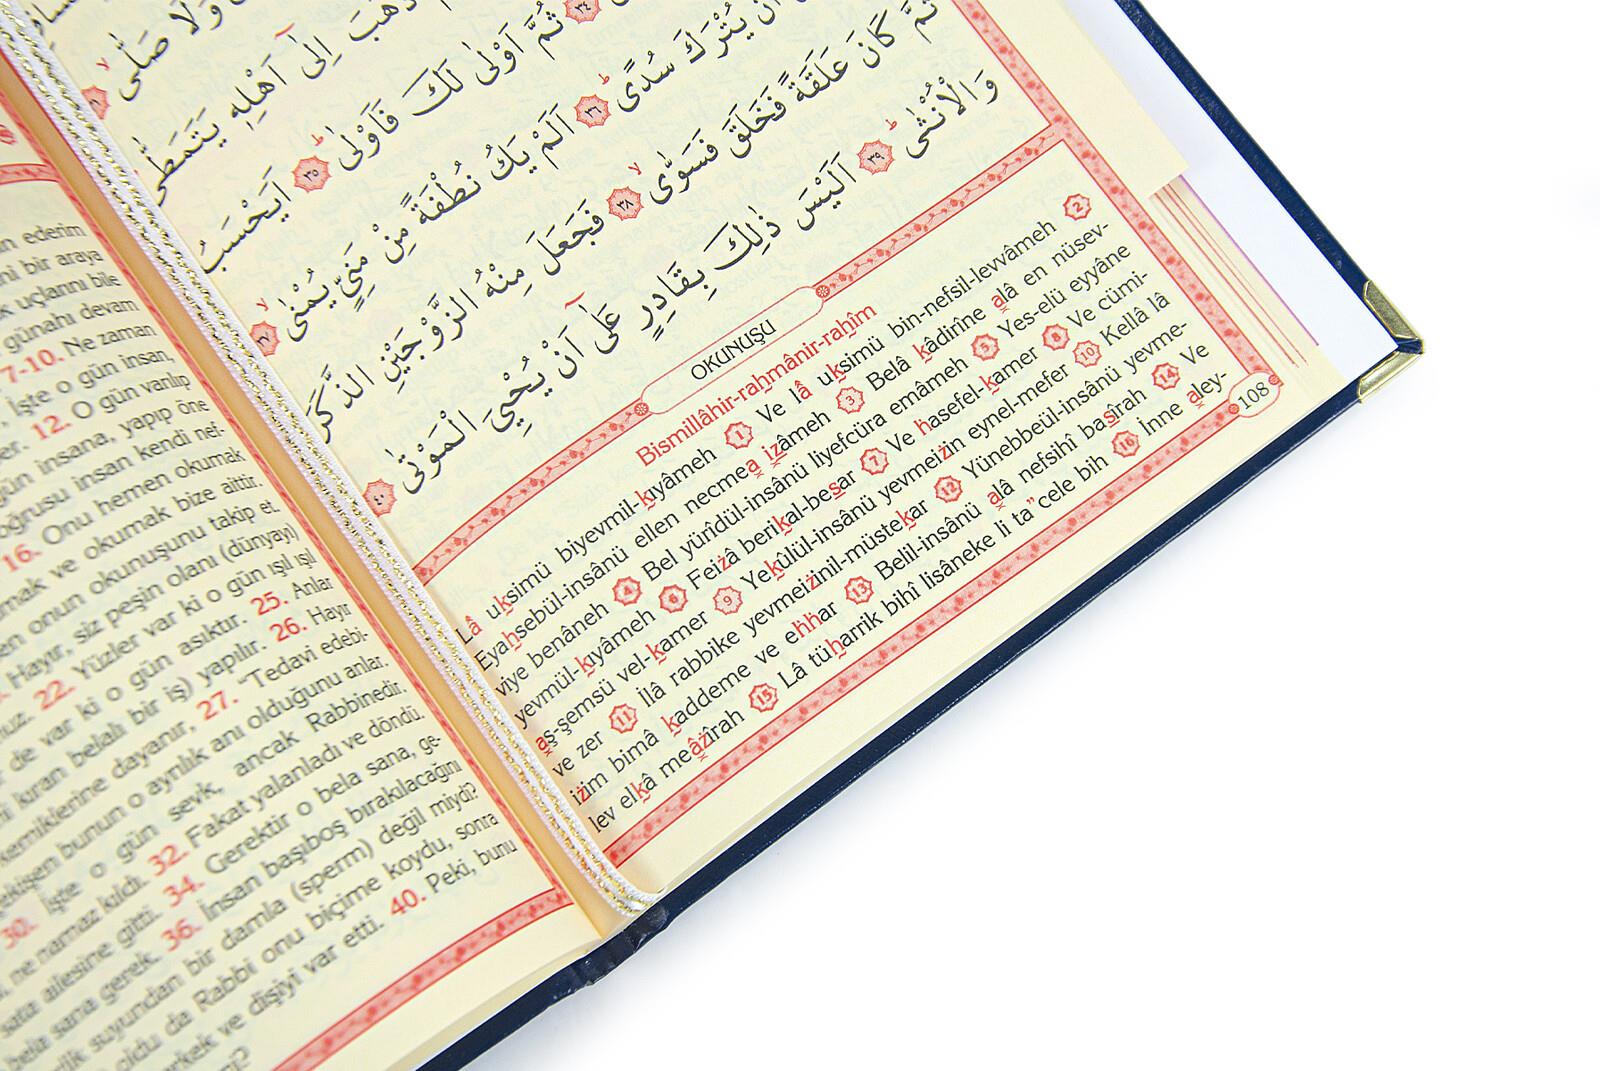 وَلَا صَلّٰى ۙ ٣١
ذَهَبَ اِلٰٓى اَهْلِهٖ يَتَمَطّٰى
٣٤ ثُمَّ اَوْلٰى لَكَ فَاَوْلٰى ؕ ٣٥ اَيَحْسَبُ
اَنْ يُتْرَكَ سُدًى ؕ ٣٦ اَلَمْ يَكُ نُطْفَةً مِنْ مَنِيٍّ يُمْنٰى ۙ ٣٧
ثُمَّ كَانَ عَلَقَةً فَخَلَقَ فَسَوّٰى ۙ ٣٨ فَجَعَلَ مِنْهُ الزَّوْجَيْنِ الذَّكَرَ
وَالْاُنْثٰى ؕ ٣٩ اَلَيْسَ ذٰلِكَ بِقَادِرٍ عَلٰٓى اَنْ يُحْيِيَ الْمَوْتٰى ٤٠
OKUNUŞU
Bismillâhir-rahmânir-rahîm
Lâ uksimü biyevmil-kıyâmeh 1 Ve lâ uksimü bin-nefsil-levvâmeh 2
Eyahsebül-insânü ellen necmea izâmeh 3 Belâ kâdirîne alâ en nüsev-
viye benâneh 4 Bel yürîdül-insânü liyefcüra emâmeh 5 Yes-elü eyyâne
yevmül-kıyâmeh 6 Feizâ berikal-besar 7 Ve hasefel-kamer 8 Ve cümi-
aş-şemsü vel-kamer 9 Yekûlül-insânü yevmeizin eynel-mefer 10 Kellâ lâ
ve zer 11 İlâ rabbike yevmeizinil-müstekar 12 Yünebbeül-insânü yevme-
izim bimâ kaddeme ve ehhar 13 Belil-insânü alâ nefsihî basîrah 14 Ve
lev elkâ meâzîrah 15 Lâ tüharrik bihî lisâneke li ta"cele bih 16 İnne aley-
108
ederim
bir araya
uçlarını bile
günahı devam
7-10. Ne zaman
İşte o gün insan,
12. O gün varılıp
gün insana, yapıp öne
oğrusu insan kendi nef-
16. Onu hemen okumak
ve okumak bize aittir.
onun okunuşunu takip et.
Hayır, siz peşin olanı (dünyayı)
22. Yüzler var ki o gün ışıl ışıl
de var ki o gün asıktır. 25. Anlar
kıran belalı bir iş) yapılır. 26. Hayır
kemiklerine dayanır, 27. "Tedavi edebi-
bunun o ayrılık anı olduğunu anlar.
30. İşte o gün sevk, ancak Rabbinedir.
ne namaz kıldı. 32. Fakat yalanladı ve döndü.
ailesine gitti. 34. Gerektir o bela sana, ge-
bela sana gerek. 36. İnsan başıboş bırakılacağını
suyundan bir damla (sperm) değil miydi?
oldu da Rabbi onu biçime koydu, sonra
erkek ve dişiyi var etti. 40. Peki, bunu